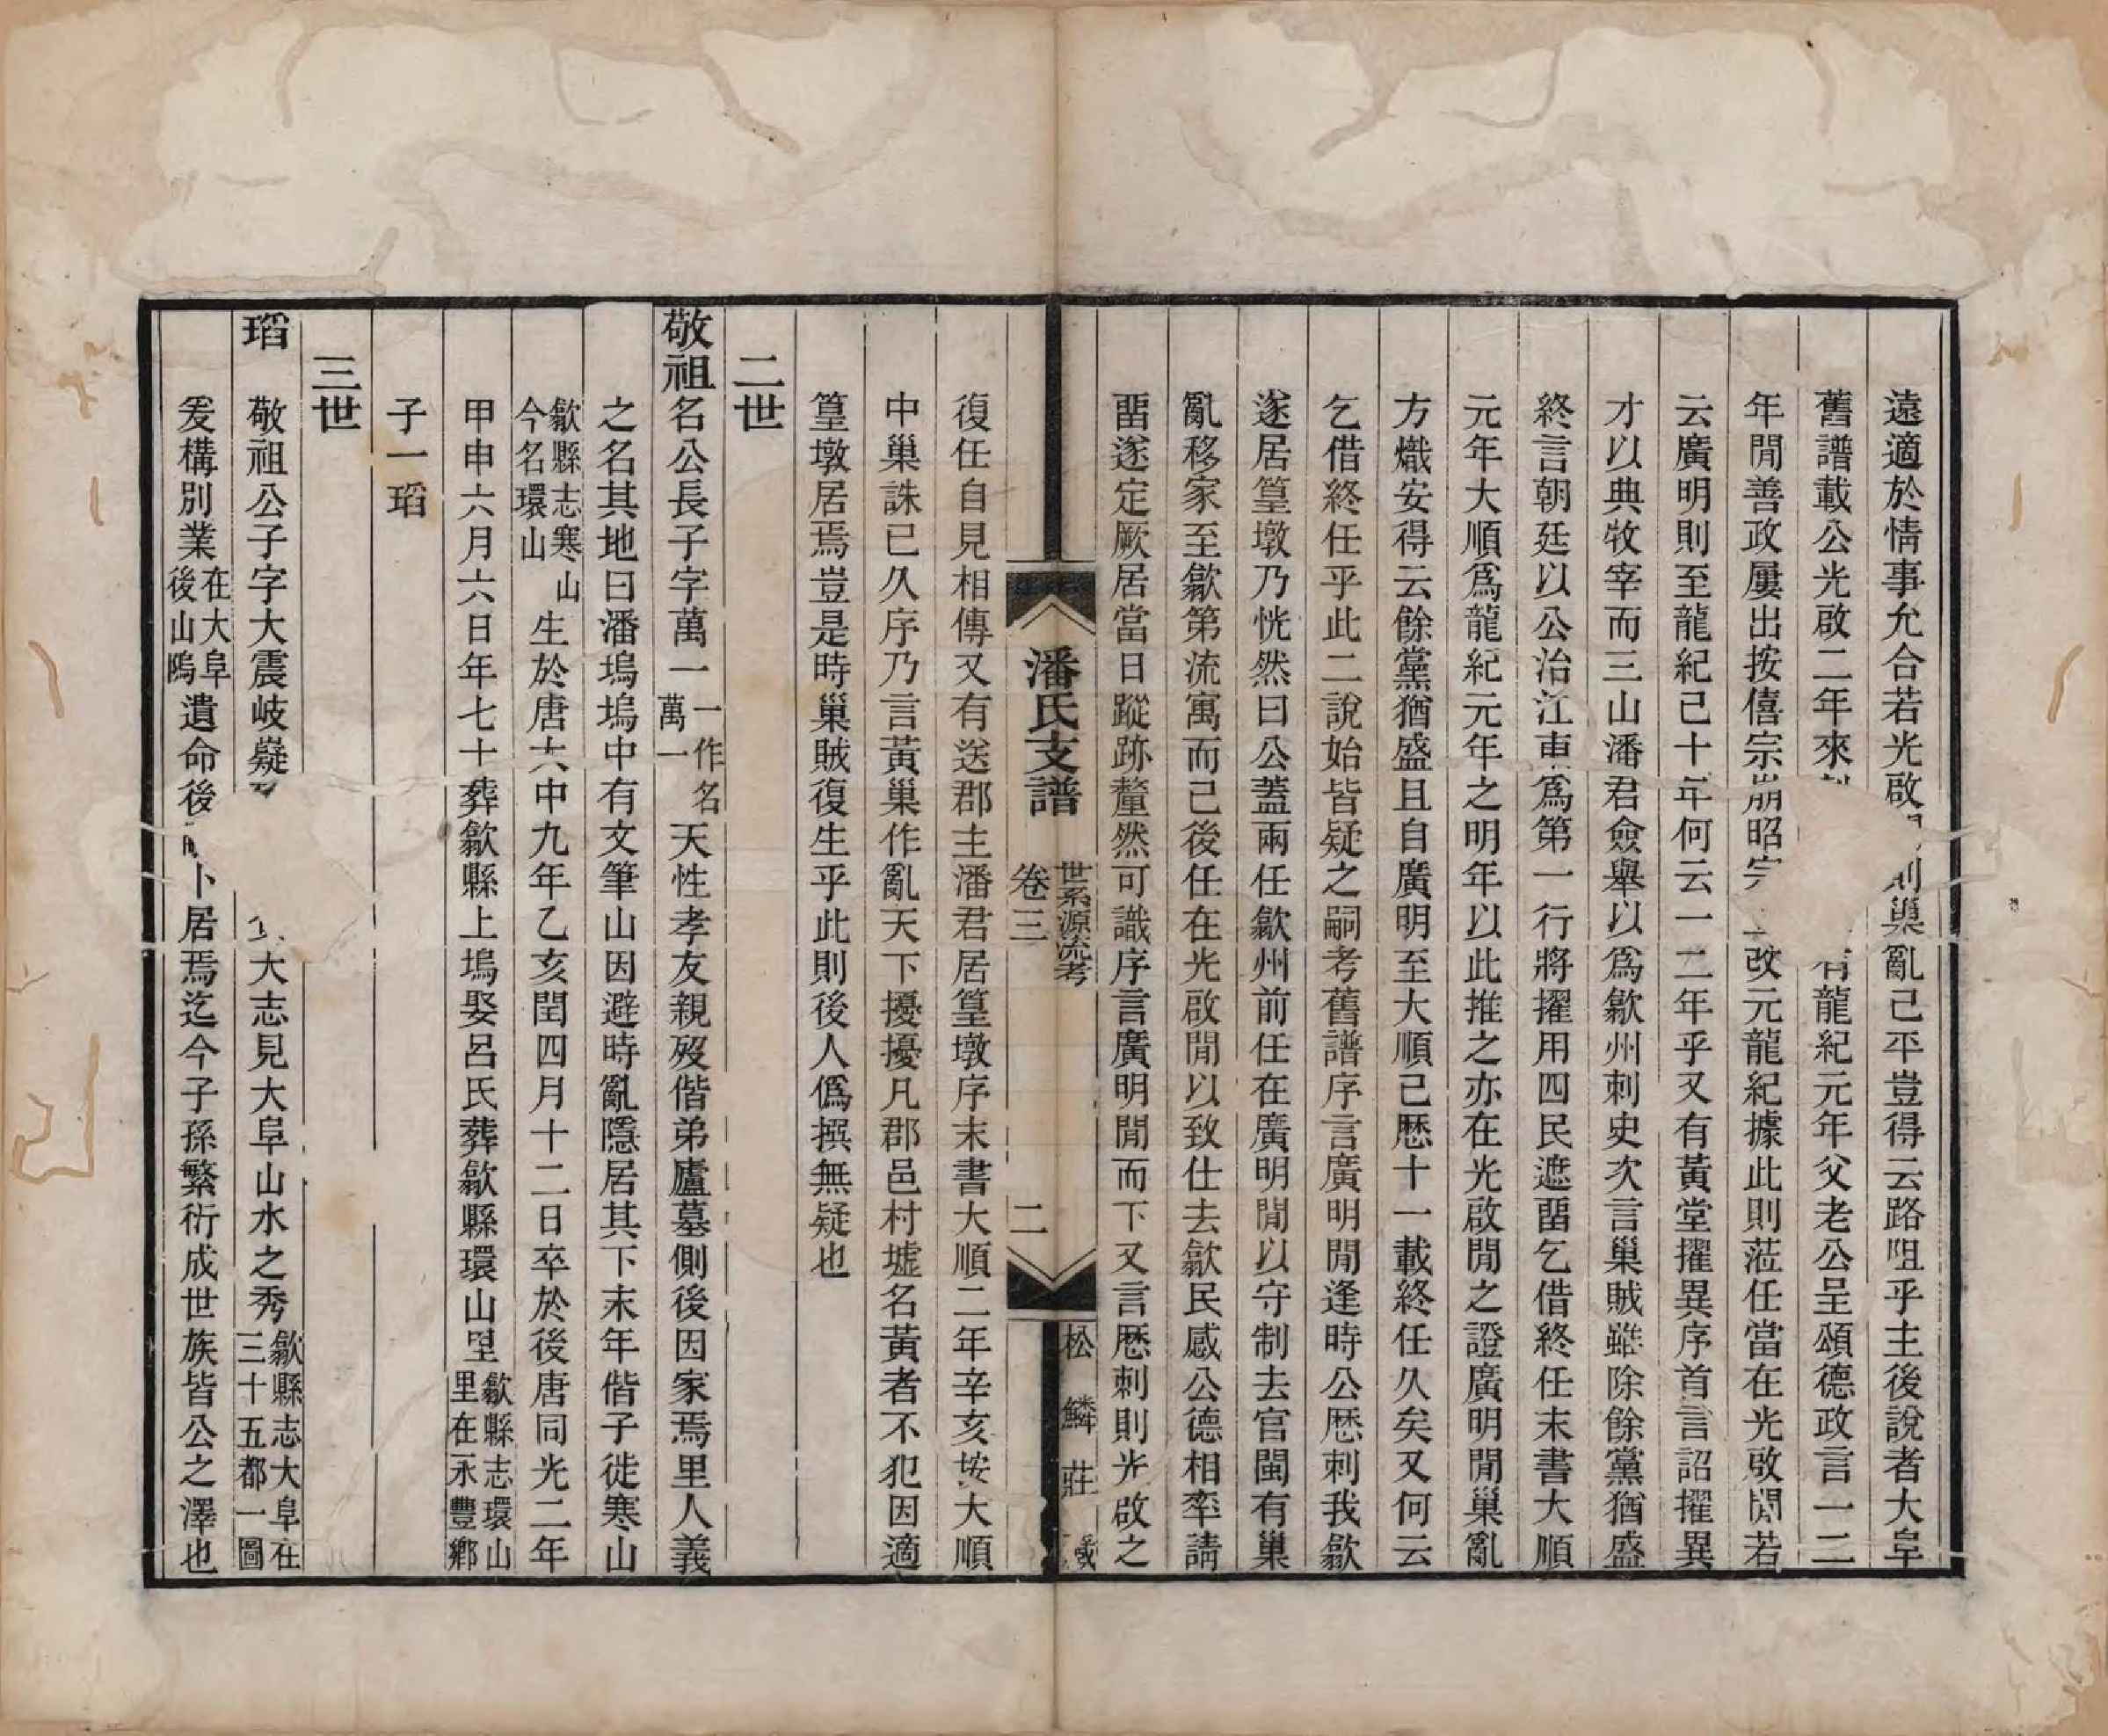 遠適於情事允合若光啟則巢亂已平豈得云路阻乎主後說者大阜
舊譜載公光啟二年來有龍紀元年父老公呈頌德政言一二
年閒善政屢出按僖宗崩昭宗改元龍紀據此則蒞任當在光啟閒若
云廣明則至龍紀已十年何云一二年乎又有黃堂擢異序首言詔擢異
才以典牧宰而三山潘君僉舉以爲歙州刺史次言巢賊雖除餘黨猶盛
終言朝廷以公治江東爲第一行將擢用四民遮畱乞借終任末書大順
元年大順爲龍紀元年之明年以此推之亦在光啟閒之證廣明閒巢亂
方熾安得云餘黨猶盛且自廣明至大順已歷十一載終任久矣又何云
乞借終任乎此二說始皆疑之嗣考舊譜序言廣明閒逢時公歷刺我歙
遂居篁墩乃恍然曰公蓋兩任歙州前任在廣明閒以守制去官閩有巢
亂移家至歙第流寓而已後任在光啟閒以致仕去歙民感公德相率請
畱遂定厥居當日蹤跡釐然可識序言廣明閒而下又言歷刺則光啟之
潘氏支譜 卷三 世系源流考 二 松鱗莊
復任自見相傳又有送郡主潘君居篁墩序末書大順二年辛亥按大順
中巢誅已久序乃言黃巢作亂天下擾擾凡郡邑村墟名黃者不犯因適
篁墩居焉豈是時巢賊復生乎此則後人僞撰無疑也
二世
敬祖 名公長子字萬一一作名萬一天性孝友親歿偕弟廬墓側後因家焉里人義
之名其地曰潘塢塢中有文筆山因避時亂隱居其下末年偕子徙寒山
歙縣志寒山今名環山生於唐大中九年乙亥閏四月十二日卒於後唐同光二年
甲申六月六日年七十葬歙縣上塢娶呂氏葬歙縣環山里歙縣志環山里在永豐鄉
子一瑫
三世
瑫 敬祖公子字大震岐嶷大志見大阜山水之秀歙縣志大阜在三十五都一圖
爰構別業在大阜後山隖遺命後卜居焉迄今子孫繁衍成世族皆公之澤也